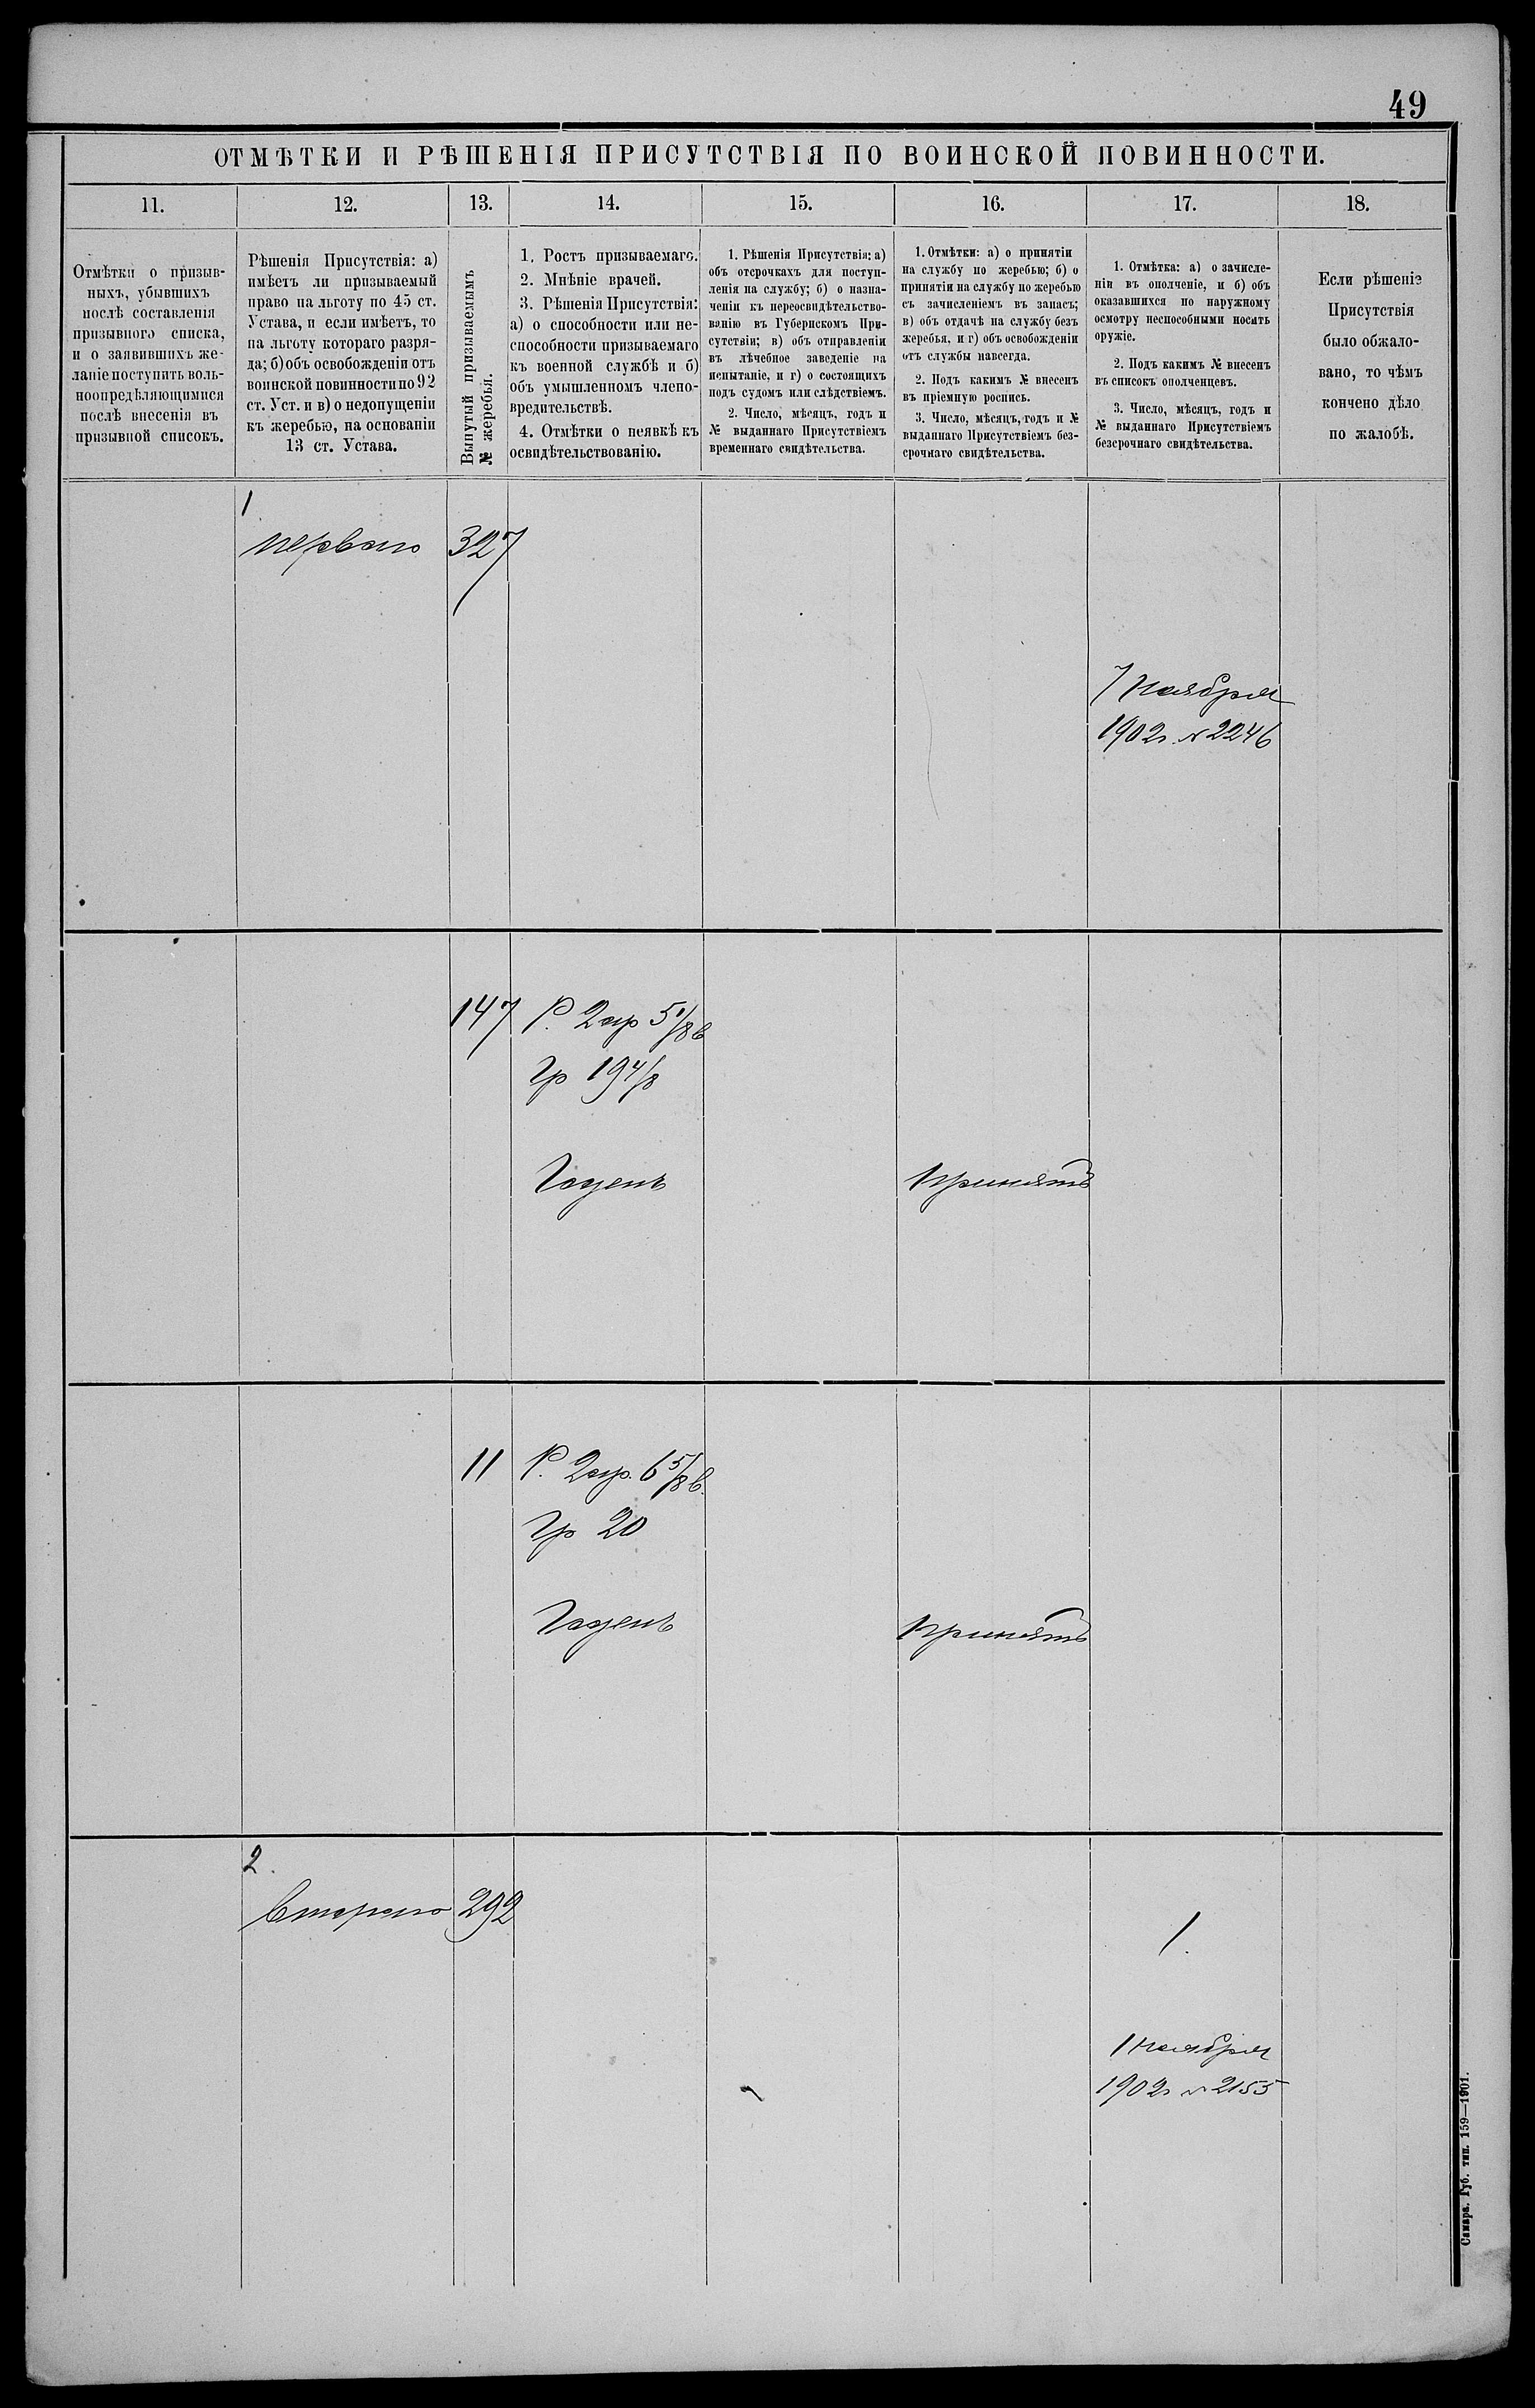 49
ОТМѢТКИ И РѢШЕНІЯ ПРИСУТСТВІЯ ПО ВОИНСКОЙ ПОВИННОСТИ.
11.
12.
13.
14.
15.
16.
17.
18.
Отмѣтки о призыв-
ныхъ, убывшихъ
послѣ составленія
призывного списка,
и о заявившихъ же-
ланіе поступить воль-
ноопредѣляющимися
послѣ внесенія въ
призывной списокъ.
Рѣшенія Присутствія: а)
имѣетъ ли призываемый
право на льготу по 45 ст.
Устава, и если имѣетъ, то
на льготу котораго разря-
да; б) объ освобожденіи отъ
воинской повинности по 92
ст. Уст. и в) о недопущеніи
къ жеребью, на основаніи
13 ст. Устава.
Вынутый призываемымъ
№ жеребья.
1. Ростъ призываемаго.
2. Мнѣніе врачей.
3. Рѣшенія Присутствія:
а) о способности или не-
способности призываемаго
къ военной службѣ и б)
объ умышленномъ члено-
вредительствѣ.
4. Отмѣтки о неявкѣ къ
освидѣтельствованію.
1. Рѣшенія Присутствія: а)
объ отсрочкахъ для поступ-
ленія на службу; б) о назна-
ченіи къ переосвидѣтельство-
ванію въ Губернскомъ При-
сутствіи; в) объ отправленіи
въ лѣчебное заведеніе на
испытаніе, и г) о состоящихъ
подъ судомъ или слѣдствіемъ.
2. Число, мѣсяцъ, годъ и
№ выданнаго Присутствіемъ
временнаго свидѣтельства.
1. Отмѣтки: а) о принятіи
на службу по жеребью; б) о
принятіи на службу по жеребью
съ зачисленіемъ въ запасъ;
в) объ отдачѣ на службу безъ
жеребья, и г) объ освобожденіи
отъ службы навсегда.
2. Подъ какимъ № внесенъ
въ пріемную роспись.
3. Число, мѣсяцъ, годъ и №
выданнаго Присутствіемъ без-
срочнаго свидѣтельства.
1. Отмѣтка: а) о зачисле-
ніи въ ополченіе, и б) объ
оказавшихся по наружному
осмотру неспособными носить
оружіе.
2. Подъ какимъ № внесенъ
въ списокъ ополченцевъ.
3. Число, мѣсяцъ, годъ и
№ выданнаго Присутствіемъ
безсрочнаго свидѣтельства.
Если рѣшеніе
Присутствія
было обжало-
вано, то чѣмъ
кончено дѣло
по жалобѣ.
1
перваго 327
7 Ноября
1902г. № 2246
147 Р. 2ар 5 1/8 в
Гр 19 4/8
Годенъ
Принятъ
11 Р. 2ар. 6 5/8 в.
Гр 20
Годенъ
Принятъ
2.
Второго 292
1.
1 ноября
1902г № 2155
Самара. Губ. тип. 159—1901.